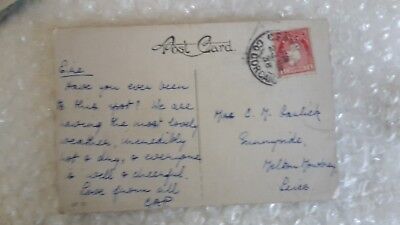 Post Card.
CO. CORCA
Eire
Have you ever been
to this spot? We are
having the most lovely
weather, incredibly
hot & dry, & everyone
is well & cheerful.
Love from all
CAP
Mrs C. M.
Sunnyside,
Melton Mowbray,
Leics.